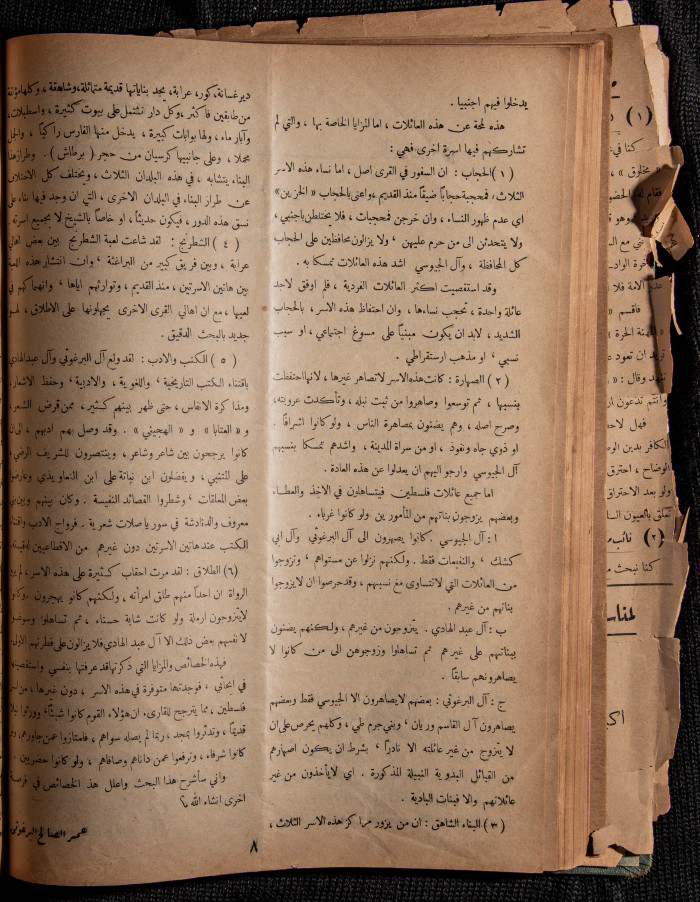 يدخلوا فيهم اجنبيا .
هذه لمحة عن هذه العائلات ، اما المزايا الخاصة بها ، والتي لم
تشاركهم فيها اسرة اخرى فهي :
( ١ ) الحجاب : ان السفور في القرى اصل ، اما نساء هذه الاسر
الثلاث ، فمحجبة حجاباً ضيقاً منذ القديم ، واعنى بالحجاب « الخزين »
اي عدم ظهور النساء ، وان خرجن فمحجبات ، فلا يختلطن باجنبي ،
ولا يتحدثن الى من حرم عليهن ، ولا يزالون محافظين على الحجاب
كل المحافظة ، وآل الجيوسي اشد هذه العائلات تمسكا به .
وقد استقصيت اكثر العائلات الفردية ، فلم اوفق لاجد
عائلة واحدة ، تحجب نساءها ، وان احتفاظ هذه الاسر ، بالحجاب
الشديد ، لابد ان يكون مبنياً على مسوغ اجتماعي ، او سبب
نسبي ، او مذهب ارستقراطي .
( ٢ ) الصهارة : كانت هذه الاسر لاتصاهر غيرها ، لانها احتفظت
بنسبها ، ثم توسعوا وصاهروا من ثبت نبله ، وتأكدت عروبته ،
وصرح اصله ، وهم يضنون بمصاهرة الناس ، ولو كانوا اشرافا .
او ذوي جاه ونفوذ ، او من سراة المدينة ، واشدهم تمسكا بنسبهم
آل الجيوسي وارجو اليهم ان يعدلوا عن هذه العادة .
اما جميع عائلات فلسطين فيتساهلون في الاخذ والعطاء
وبعضهم يزوجون بناتهم من المأمورين ولو كانوا غرباء .
ا : آل الجيوسي . كانوا يصهرون الى آل البرغوثي وآل ابي
كشك ، والنفيعات فقط . ولكنهم نزلوا عن مستواهم ، وتزوجوا
من العائلات التي لاتتساوى مع نسبهم ، وقد حرصوا ان لايزوجوا
بناتهم من غيرهم .
ب : آل عبد الهادي . يتزوجون من غيرهم ، ولكنهم يضنون
ببناتهم على غيرهم ثم تساهلوا وزوجوهن الى من كانوا لا
يصاهرونهم سابقاً .
ج : آل البرغوثي : بعضهم لايصاهرون الا الجيوسي فقط وبعضهم
يصاهرون آل القاسم وريان ، وبني جرم طي ، وكلهم يحرص على ان
لا يتزوج من غير عائلته الا نادراً ، بشرط ان يكون اصهارهم
من القبائل البدوية النبيلة المذكورة . اي لايأخذون من غير
عائلاتهم والا فبنات البادية .
( ٣ ) البناء الشاهق : ان من يزور مراكز هذه الاسر الثلاث ،
دير غسانة ، كور ، عرابة ، يجد بناياتها قديمة متماثلة ، وشاهقة ، وكلها مؤلفة
من طابقين فأكثر ، وكل دار تشتمل على بيوت كثيرة ، واسطبلات ،
وآبار ماء ، ولها بوابات كبيرة ، يدخل منها الفارس راكباً ، والجمل
محملا ، وعلى جانبيها كرسيان من حجر ( برطاش ) . وطراز هذا
البناء يتشابه ، في هذه البلدان الثلاث ، ويختلف كل الاختلاف
عن طراز البناء في البلدان الاخرى ، التي ان وجد فيها بناء على
نسق هذه الدور ، فيكون حديثاً ، او خاصاً بالشيخ لا بجميع اسرته .
( ٤ ) الشطرنج : لقد شاعت لعبة الشطرنج بين بعض اهالي
عرابة ، وبين فريق كبير من البراغثة ، وان انتشار هذه اللعبة
بين هاتين الاسرتين ، منذ القديم ، وتوارثهم اياها ، وانهماكهم في
لعبها ، مع ان اهالي القرى الاخرى يجهلونها على الاطلاق ، لهو
جدير بالبحث الدقيق .
( ٥ ) الكتب والادب : لقد ولع آل البرغوثي وآل عبد الهادي
باقتناء الكتب التاريخية ، واللغوية ، والادبية ، وحفظ الاشعار ،
ومذاكرة الاغاس ، حتى ظهر بينهم كثير ، ممن قرض الشعر ،
و « العتابا » و « الهجيني » . وقد وصل بهم ادبهم ، الى ان
كانوا يرجحون بين شاعر وشاعر ، وينتصرون للشريف الرضي
على المتنبي ، ويفضلون ابن نباتة على ابن التعاويذي وعارضوا
بعض المعلقات ، وشطروا القصائد النفيسة . وكان بينهم وبين بني
معروف والدنادشة في سوريا صلات شعرية . فرواج الادب واقتناء
الكتب عند هاتين الاسرتين دون غيرهم من الاقطاعيين
( ٦ ) الطلاق : لقد مرت احقاب كثيرة على هذه الاسر ، لم يرو
الرواة ان احداً منهم طلق امرأته ، ولكنهم كانوا يهجرون . وكانوا
لايتزوجون ارملة ولو كانت شابة حسناء ، ثم تساهلوا وسوغوا
لانفسهم بعض ذلك الا آل عبد الهادي فلا يزالون على فطرتهم الاولى .
فهذه الخصائص والمزايا التي ذكرتها قد عرفتها بنفسي واستقصيتها
في ابحاثي ، فوجدتها متوفرة في هذه الاسر ، دون غيرها ، من اسر
فلسطين ، مما يترجح للقارىء ان هؤلاء القوم كانوا شيئاً ، وورثوا
قديماً ، وتدثروا بمجد ، ربما لم يصله سواهم ، فامتازوا عمن جاورهم ،
كانوا شرفاء ، وترفعوا عمن داناهم وصافاهم ، ولو كانوا حضريين .
واني سأشرح هذا البحث واعلل هذه الخصائص في فرصة
اخرى انشاء الله ؟
عمر الصالح البرغوثي
٨
( ١ )
كنا في
مخلوق » ،
( ٢ ) نائب
كنا نبحث